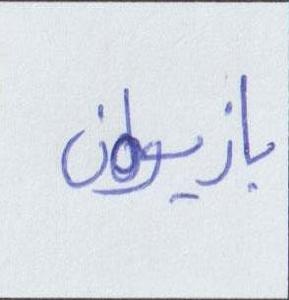 بازیوان